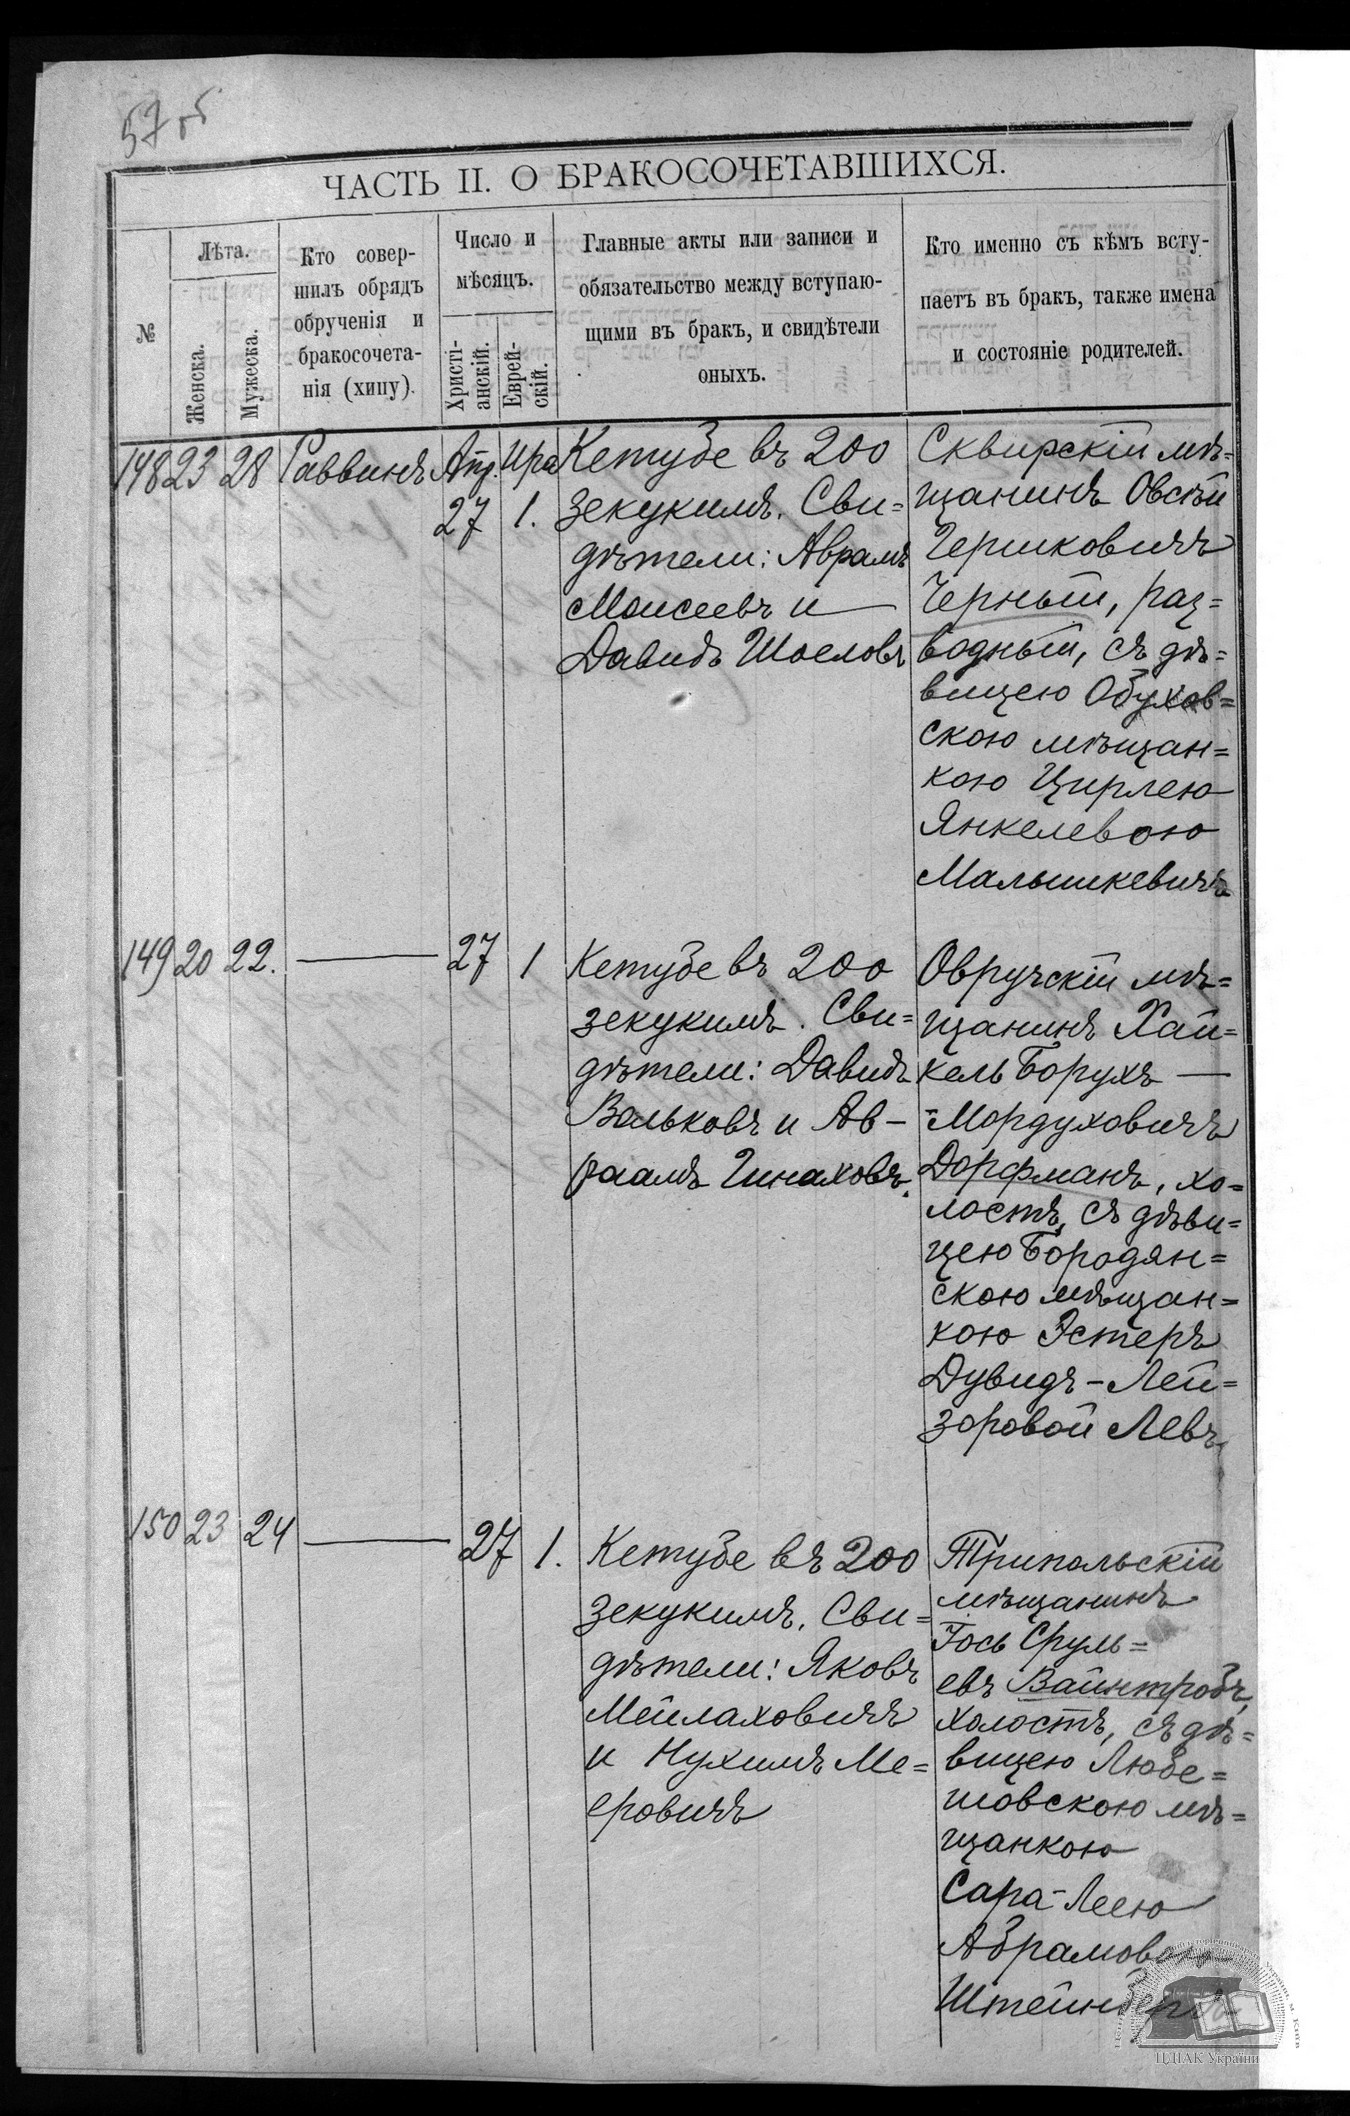 57 об
ЧАСТЬ II. О БРАКОСОЧЕТАВШИХСЯ.
№
Лѣта.
Женска.
Мужеска.
Кто совер-
шилъ обрядъ
обрученія и
бракосочета-
нія (хипу).
Число и
мѣсяцъ.
Христі-
анскій.
Еврей-
скій.
Главные акты или записи и
обязательство между вступаю-
щими въ бракъ, и свидѣтели
оныхъ.
Кто именно съ кѣмъ всту-
паетъ въ бракъ, также имена
и состояніе родителей.
148 23 28 Раввинъ Апр. 27 Ира 1.
Кетубе въ 200
зекукимъ. Сви=
дѣтели: Аврамъ
Моисеевъ и
Давидъ Шоеловъ
Сквирскій мѣ=
щанинъ Овсѣй
Гершковичъ
Черный, раз=
водный, съ дѣ=
вицею Обухов=
скою мѣщан=
кою Цирлею
Янкелевою
Малышкевичъ
149 20 22. 27 1
Кетубе въ 200
зекукимъ. Сви=
дѣтели: Давидъ
Вольковъ и Ав-
раамъ Гинаховъ.
Овручскій мѣ=
щанинъ Хай=
кель Борухъ —
-Мордуховичъ
Дорфманъ, хо=
лостъ, съ дѣви=
цею Бородян=
скою мѣщан=
кою Эстеръ
Дувидъ-Лей=
зоровой Левъ
150 23 24 27 1.
Кетубе въ 200
зекукимъ. Сви=
дѣтели: Яковъ
Мейлаховичъ
и Нухимъ Ме=
еровичъ
Трипольскій
мѣщанинъ
Іось Сруль=
евъ Вайнтробъ,
холостъ, съ дѣ=
вицею Любе=
шовскою мѣ=
щанкою
Сара-Леею
Абрамовою
Штейнбергъ
ЦДІАК України